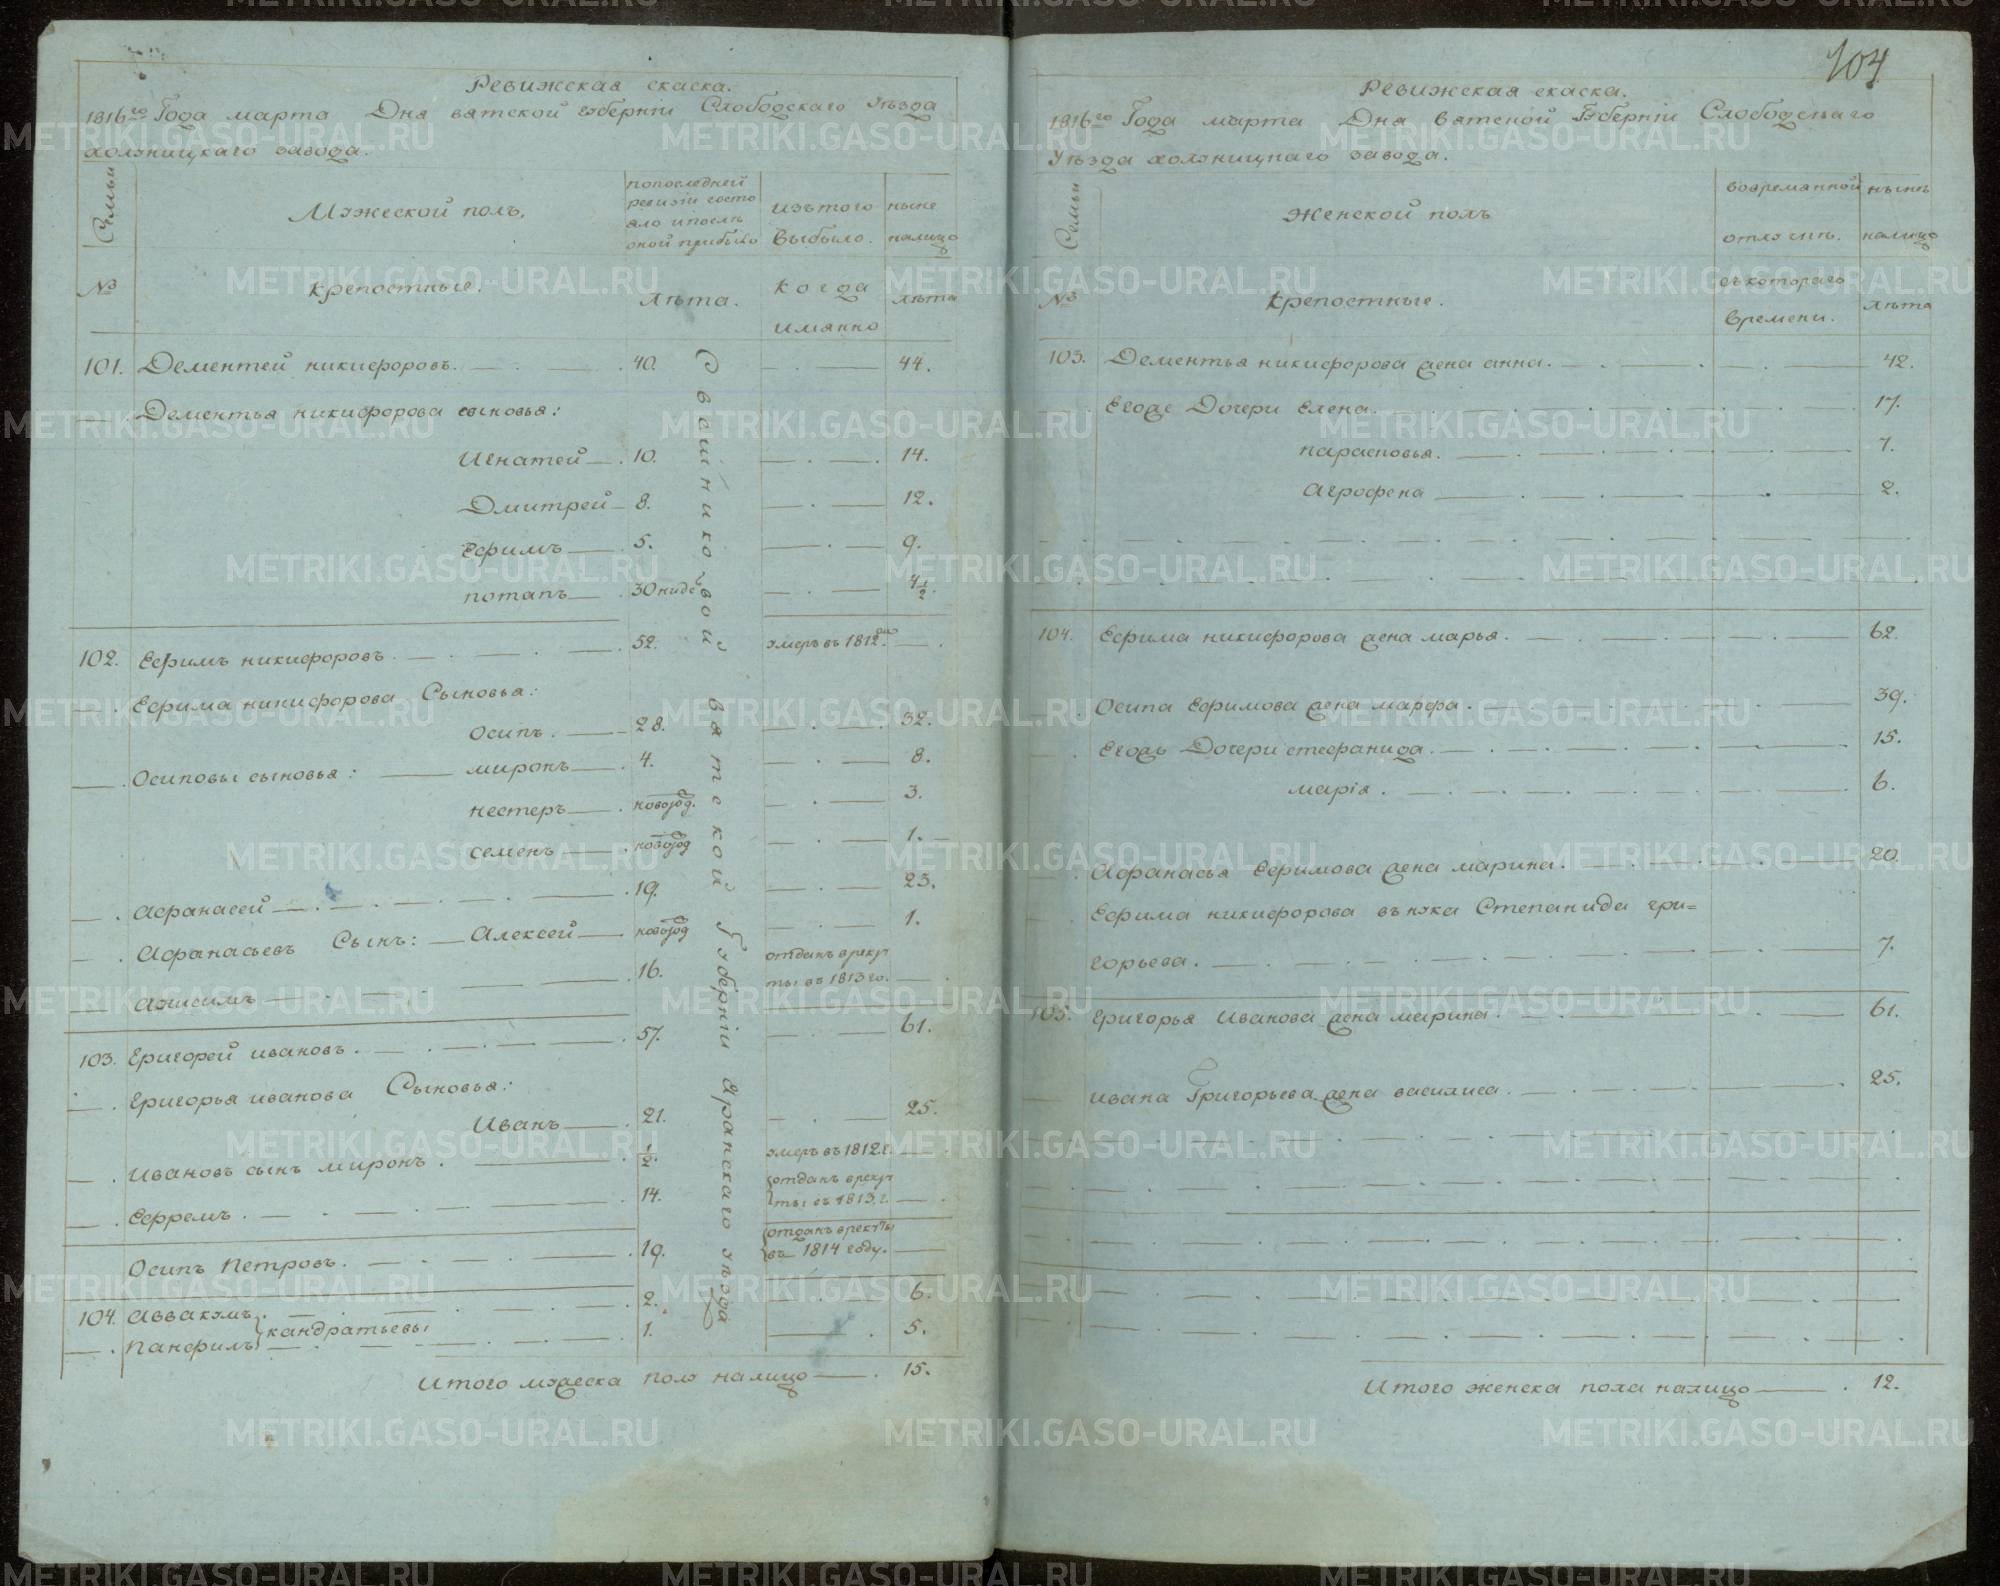 Ревижская скаска.
1816го Года марта Дня вятской губерніи Слободскаго уѣзда
холуницкаго завода.
Семьи
Мужеской полъ,
попоследней
ревизіи состо
яло ипослѣ
оной прибыло
изътого
выбыло.
ныне
налицо
№
крепостные.
лѣта.
когда
имянно
лѣта
101. Дементей никифоровъ. 40. 44.
Дементья никифорова сыновья:
Игнатей 10. 14.
Дмитрей 8. 12.
Ефимъ 5. 9.
потапъ 30 4 1/2.
102. Ефимъ никифоровъ 52. умеръ въ 1812
Ефима никифорова Сыновья:
осипъ. 28. 32.
Осиповы сыновья: миронъ 4. 8.
нестеръ новорд. 3.
семенъ новорд 1.
Афанасей 19. 23.
Афанасьевъ Сынъ: Алексей новорд 1.
16. отданъ врекру
ты въ 1813го.
103. Григорей ивановъ. 57. 61.
Григорья иванова Сыновья:
Иванъ 21. 25.
ивановъ сынъ миронъ. 1/2. умеръ въ 1812.г.
Ефремъ. 14. отданъ врекру
ты въ 1813.г.
Осипъ Петровъ. 19. отданъ врекруты
въ 1814 году.
104. Аввакумъ. 2. 6.
Панфилъ кандратьевы 1. 5.
вятской Губерніи Яранскаго уѣзда
Итого мужеска полу налицо 15.
104
Ревижская скаска.
1816го Года марта Дня вятской Губерніи Слободскаго
Уѣзда холуницкаго завода.
Семьи
Женской полъ
вовременной
отлучкѣ.
нынѣ
налицо
№
крепостные.
съкотораго
времени.
лѣта
103. Дементья никифорова жена анна. 42.
Егоже Дочери Елена. 17.
парасковья. 7.
Агрофена 2.
104. Ефима никифорова жена марья. 62.
Осипа Ефимова жена марфа. 39.
Егожъ Дочери стефанида. 15.
марія. 6.
Афанасья Ефимова жена марина. 20.
Ефима никифорова внука Степанида гри=
горьева. 7.
105. Григорья Иванова жена марина 61.
ивана Григорьева жена василиса. 25.
Итого женска пола налицо 12.
METRIKI.GASO-URAL.RU